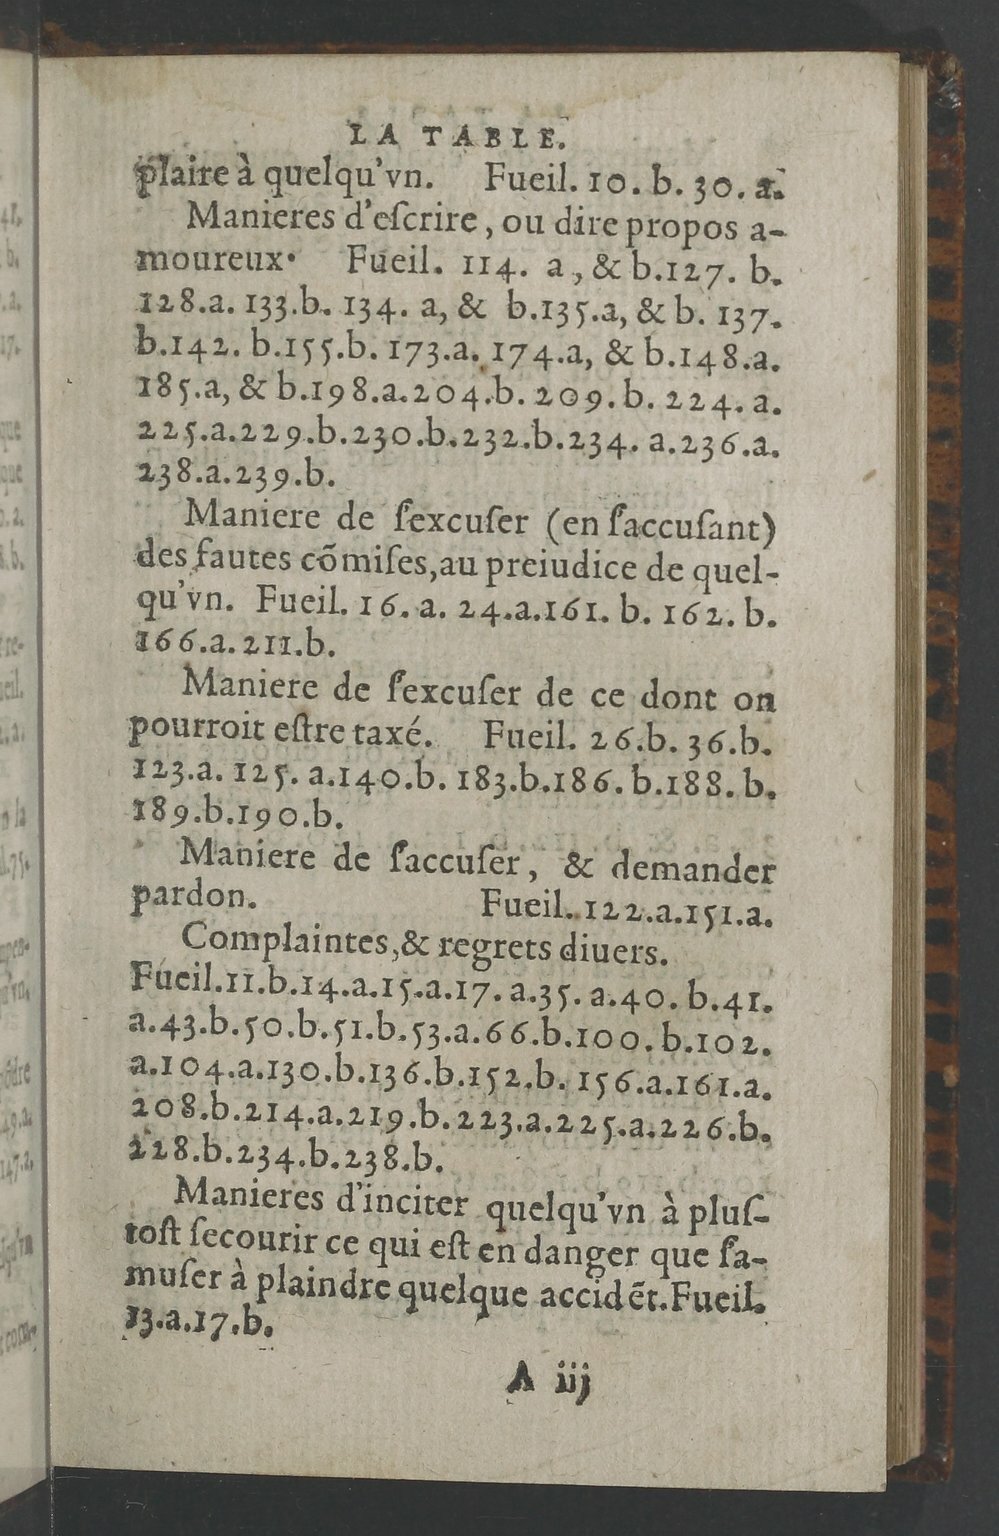 LA TABLE.
plaire à quelqu'vn. Fueil. 10. b. 30. a.
Manieres d'eſcrire, ou dire propos a-
moureux. Fueil. 114. a, & b.127. b.
128.a. 133.b. 134. a, & b.135.a, & b. 137.
b.142. b.155.b. 173.a. 174.a, & b.148.a.
185.a, & b.198.a.204.b. 209. b. 224. a.
225.a.229.b.230.b.232.b.234. a.236.a.
238.a.239.b.
Maniere de ſ'excuſer (en ſ'accuſant)
des fautes cõmiſes,au preiudice de quel-
qu'vn. Fueil. 16. a. 24.a.161. b. 162. b.
166.a.211.b.
Maniere de ſ'excuſer de ce dont on
pourroit eſtre taxé. Fueil. 26.b. 36.b.
123.a. 125. a.140.b. 183.b.186. b.188. b.
189.b.190.b.
Maniere de ſ'accuſer, & demander
pardon. Fueil. 122.a.151.a.
Complaintes,& regrets diuers.
Fueil.11.b.14.a.15.a.17. a.35. a.40. b.41.
a.43.b.50.b.51.b.53.a.66.b.100. b.102.
a.104.a.130.b.136.b.152.b. 156.a.161.a.
208.b.214.a.219.b.223.a.225.a.226.b.
228.b.234.b.238.b.
Manieres d'inciter quelqu'vn à pluſ-
toſt ſecourir ce qui eſt en danger que ſ'a-
muſer à plaindre quelque accidẽt.Fueil.
13.a.17.b.
A iij